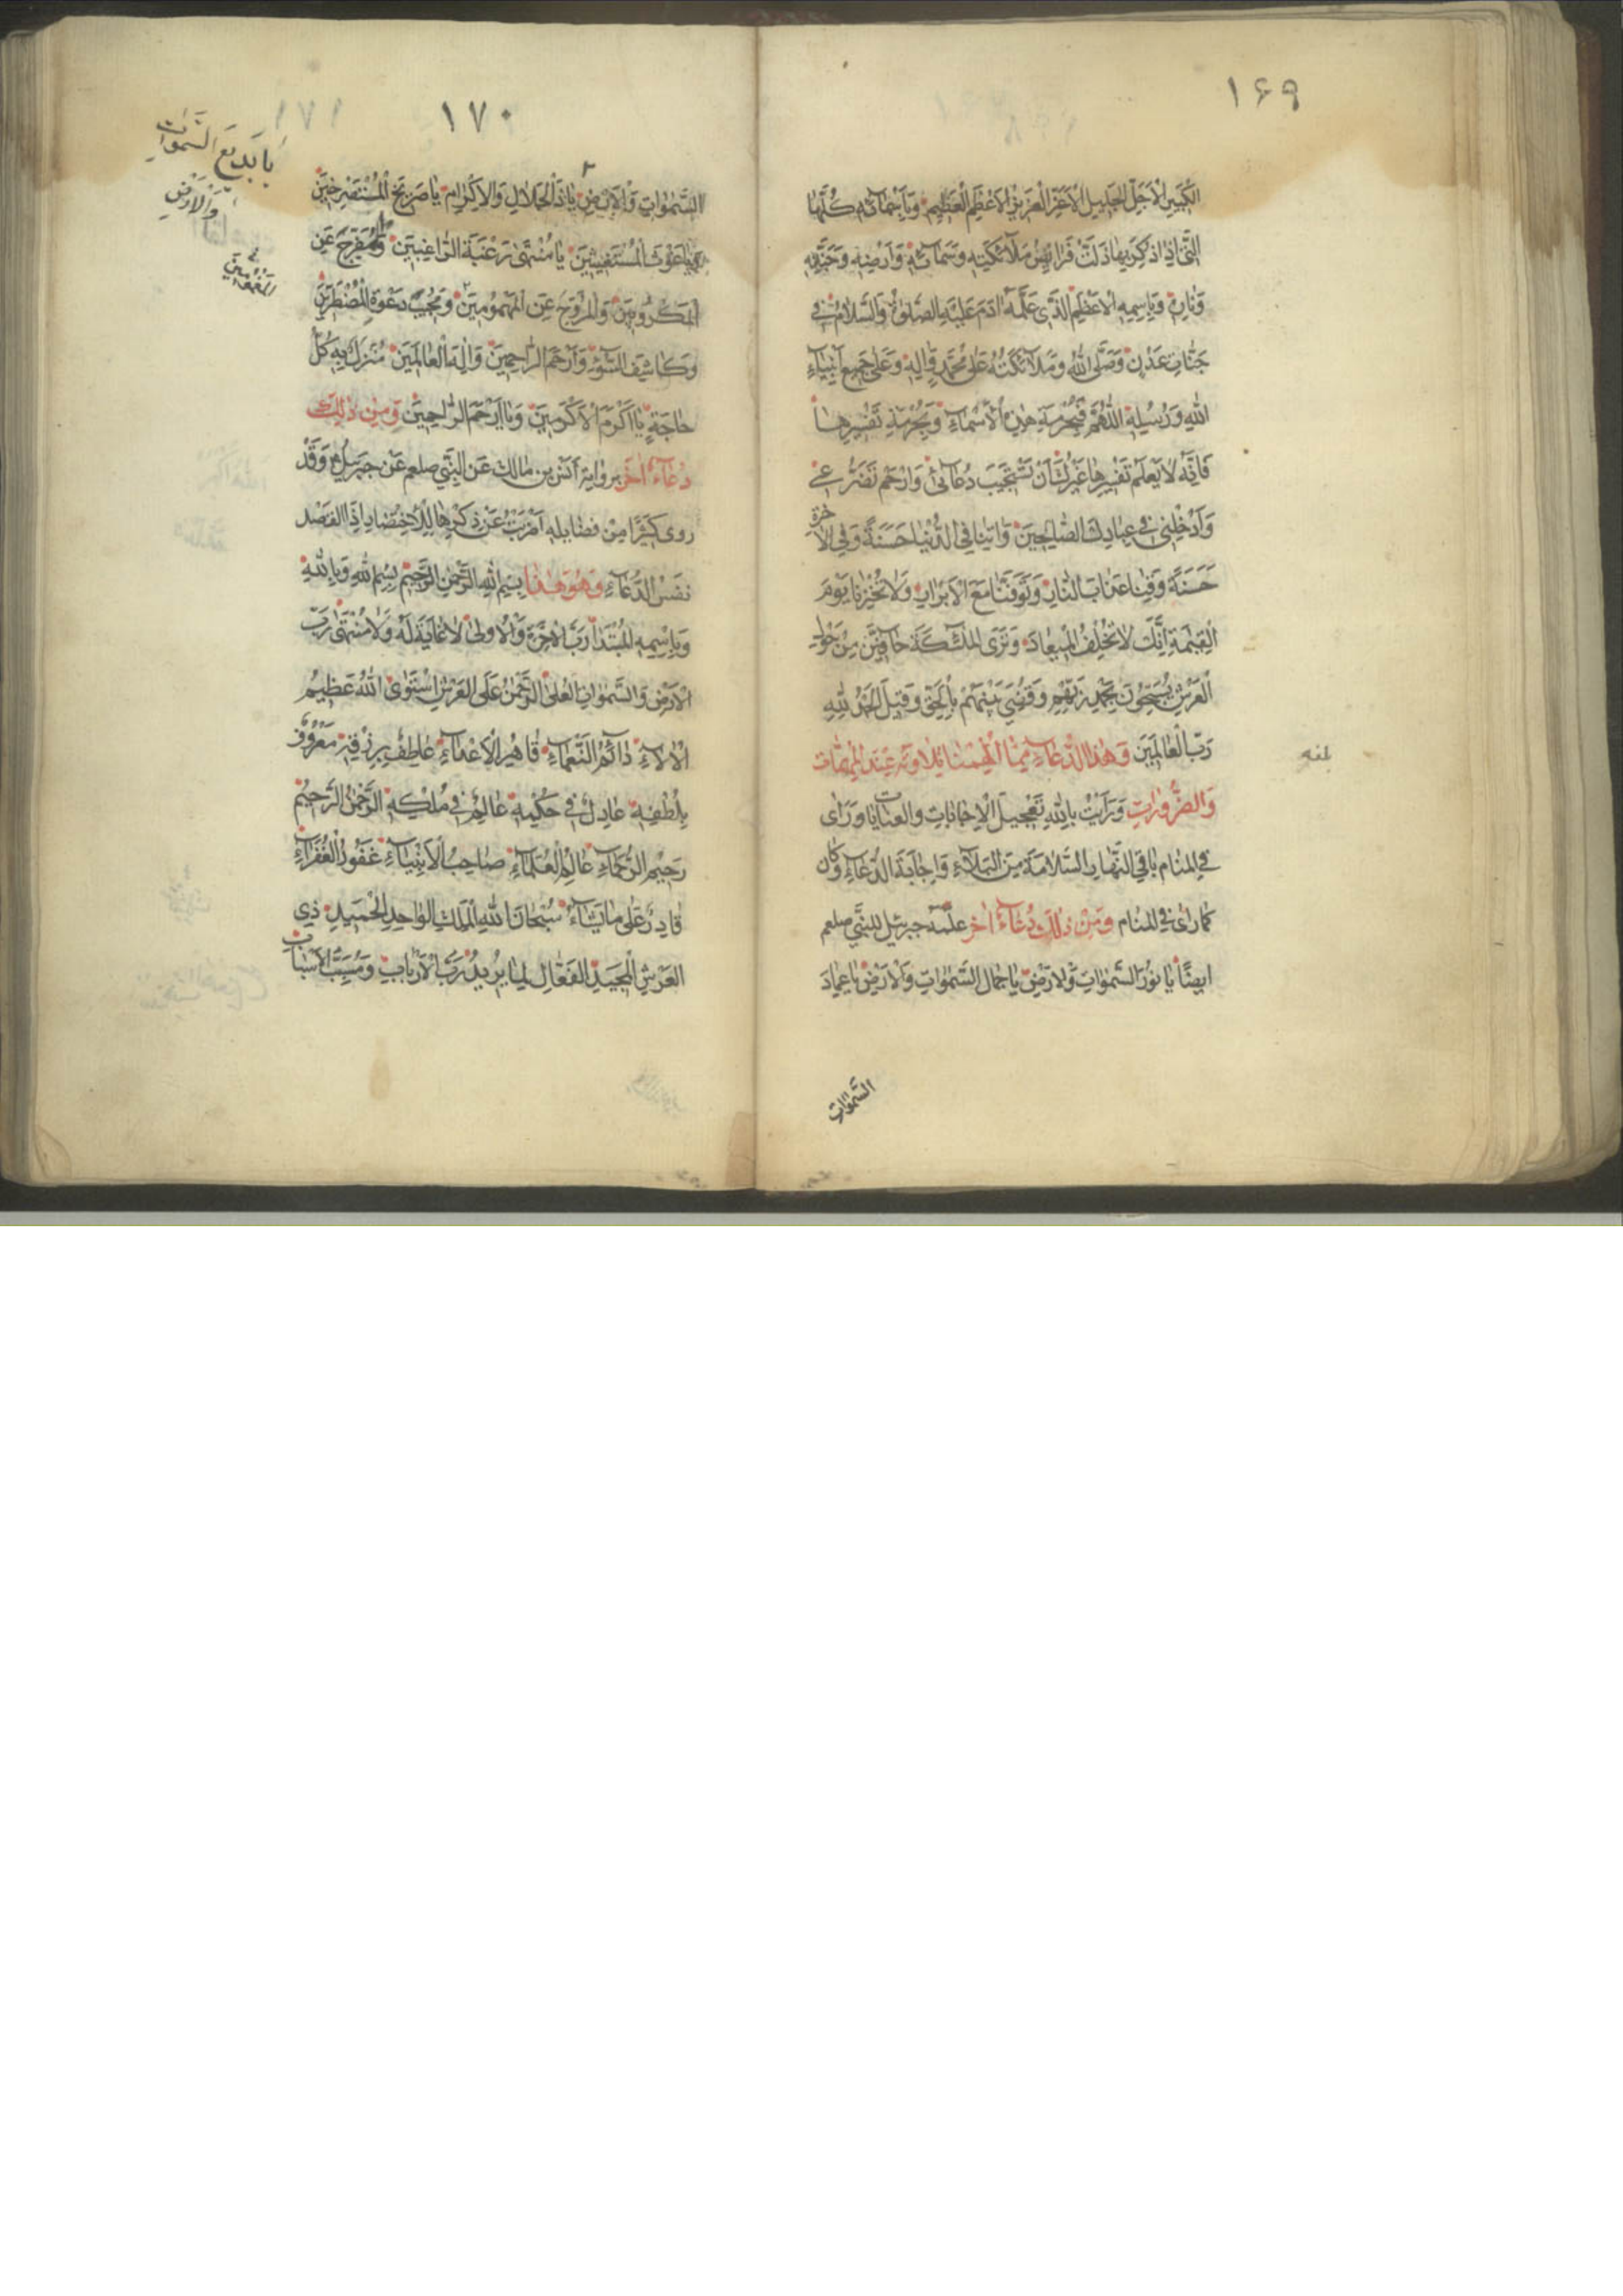 ١۶٩
الْكَبِيرِ الْاَجَلِّ الْجَلِيلِ الْاَعَزِّ الْعَزِيزِ الْاَعْظَمِ الْعَظِيمِ وَبِاَسْمَائِهِ كُلِّهَا
الَّتِي اِذَا ذُكِرَ بِهَا ذَلَّتْ فَرَائِصُ مَلَائِكَتِهِ وَسَمَائِهِ وَاَرْضِهِ وَجَنَّتِهِ
وَنَارِهِ وَبِاِسْمِهِ الْاَعْظَمِ الَّذِي عَلَّمَهُ اٰدَمَ عَلَيْهِ الصَّلٰوةُ وَالسَّلَامُ فِي
جَنَّاتِ عَدْنٍ وَصَلَّى اللّٰهُ وَمَلَائِكَتُهُ عَلٰى مُحَمَّدٍ وَاٰلِهِ وَعَلٰى جَمِيعِ اَنْبِيَاءِ
اللّٰهِ وَرُسُلِهِ اَللّٰهُمَّ فَبِحُرْمَةِ هٰذِهِ الْاَسْمَاءِ وَبِحُرْمَةِ تَفْسِيرِهَا
فَاِنَّهُ لَا يَعْلَمُ تَفْسِيرَهَا غَيْرُكَ اَنْ تَسْتَجِيبَ دُعَائِي وَارْحَمْ تَضَرُّعِي
وَاَدْخِلْنِي فِي عِبَادِكَ الصَّالِحِينَ وَاٰتِنَا فِي الدُّنْيَا حَسَنَةً وَفِي الْاٰخِرَةِ
حَسَنَةً وَقِنَا عَذَابَ النَّارِ وَتَوَفَّنَا مَعَ الْاَبْرَارِ وَلَا تُخْزِنَا يَوْمَ
الْقِيٰمَةِ اِنَّكَ لَا تُخْلِفُ الْمِيعَادَ وَتَرَى الْمَلٰئِكَةَ حَافِّينَ مِنْ حَوْلِ
الْعَرْشِ يُسَبِّحُونَ بِحَمْدِ رَبِّهِمْ وَقُضِيَ بَيْنَهُمْ بِالْحَقِّ وَقِيلَ الْحَمْدُ لِلّٰهِ
رَبِّ الْعَالَمِينَ وَهٰذَا الدُّعَاءِ مِمَّا اُلْهِمْنَا تِلَاوَتَهُ عِنْدَ الْمُهِمَّاتِ
وَالضَّرُورَاتِ وَرَاَيْتُ بِاللّٰهِ تَعْجِيلَ الْاِجَابَاتِ وَالعنايات وَرَاٰى
فِي المنام بَاقِي النَّهَارِ السَّلَامَةَ مِنَ الْبَلَاءِ وَاِجَابَةَ الدُّعَاءِ وَكَان
كَمَا رَاٰى فِي المنام وَمِنْ ذٰلِكَ دُعَاءٌ اٰخَر علّمه جبرئيل للنَّبِّي صلعم
ايضًا يَا نُورَ السَّمٰوَاتِ وَالْاَرْضِ يَا جَمَالَ السَّمٰوَاتِ وَالْاَرْضِ يَا عِمَادَ
السَّمٰوَاتِ
١٧٠
يَا بَدِيعَ السَّمٰوَاتِ
وَالْاَرْضِ
الْمَغْمُومِينَ
السَّمٰوَاتِ وَالْاَرْضِ يَا ذَا الْجَلَالِ وَالْاِكْرَامِ يَا صَرِيخَ الْمُسْتَصْرِخِينَ
وَيَا غَوْثَ الْمُسْتَغِيثِينَ يَا مُنْتَهٰى رَغْبَةِ الرَّاغِبِينَ وَالْمُفَرِّجَ عَنِ
الْمَكْرُوبِينَ وَالْمُرَوِّحَ عَنِ الْمَهْمُومِينَ وَمُجِيبَ دَعْوَةِ الْمُضْطَرِّينَ
وَكَاشِفَ السُّوءِ وَاَرْحَمَ الرَّاحِمِينَ وَاِلٰهَ الْعَالَمِينَ مُنْزَلٌ بِهِ كُلُّ
حَاجَةٍ يَا اَكْرَمَ الْاَكْرَمِينَ وَيَا اَرْحَمَ الرَّاحِمِينَ وَمِنْ ذٰلِكَ
دُعَاءٌ اٰخَر برواية اَنَس بن مَالك عَنِ النَّبِي صلعم عَنْ جبرئيل وَقَدْ
روى كَثِيرًا مِنْ فضايله اَضْرَبْتُ عَنْ ذِكْرِهَا لِلْاِخْتِصَارِ اِذَا القصد
نفس الدُّعَاءِ وَهُوَ هٰذَا بِسْمِ اللّٰهِ الرَّحْمٰنِ الرَّحِيمِ بِسْمِ اللّٰهِ وَبِاللّٰهِ
وَبِاِسْمِهِ الْمُبْتَدَا رَبِّ الْاٰخِرَةِ وَالْاُولٰى لَا غَايَةَ لَهُ وَلَا مُنْتَهٰى رَبِّ
الْاَرْضِ وَالسَّمٰوَاتِ الْعُلٰى الرَّحْمٰنُ عَلَى الْعَرْشِ اسْتَوٰى اَللّٰهُ عَظِيمُ
الْاٰلَاءِ دَائِمُ النَّعْمَاءِ قَاهِرُ الْاَعْدَاءِ عَاطِفٌ بِرِزْقِهِ مَعْرُوفٌ
بِلُطْفِهِ عَادِلٌ فِي حُكْمِهِ عَالِمٌ فِي مُلْكِهِ الرَّحْمٰنُ الرَّحِيمُ
رَحِيمُ الرُّحَمَاءِ عَالِمُ الْعُلَمَاءِ صَاحِبُ الْاَنْبِيَاءِ غَفُورُ الْغُفَرَاءِ
قَادِرٌ عَلٰى مَا يَشَاءُ سُبْحَانَ اللّٰهِ الْمَلِكِ الْوَاحِدِ الْحَمِيدِ ذِي
الْعَرْشِ الْمَجِيدِ الْفَعَّالِ لِمَا يُرِيدُ رَبِّ الْاَرْبَابِ وَمُسَبِّبِ الْاَسْبَابِ